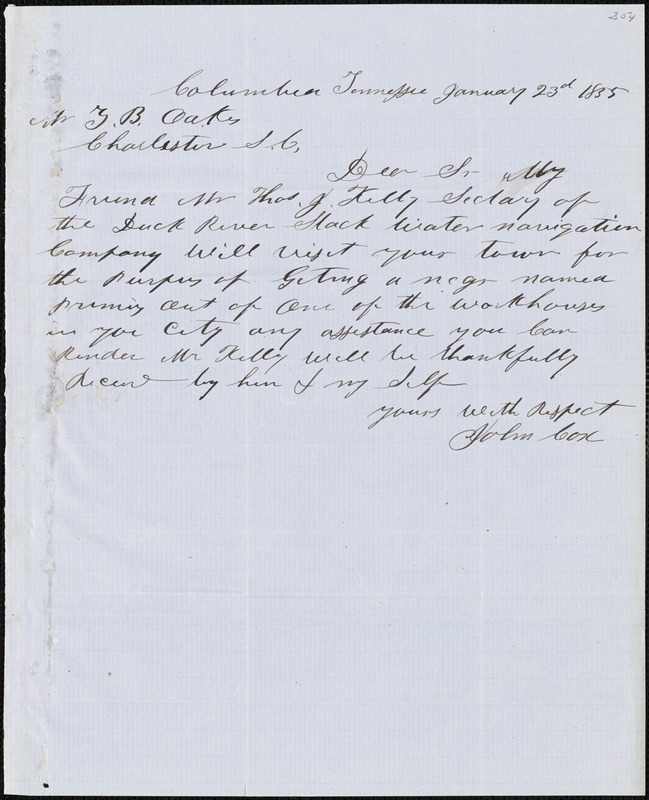 254
Columbia Tennessee January 23d 1855
Mr Z. B. Oakes
Charleston S. C,
Dear Sr My
Friend Mr Thos. J. Kelly Sectary of
the Duck River Slack Water navigation
Company Will visit your town for
the Purpus of Geting a negr named
Primus Out of One of the workhouses
in you City any assistance you Can
Render Mr Kelly will be thankfully
Receivd by him & my Self
yours With Respect
John Cox